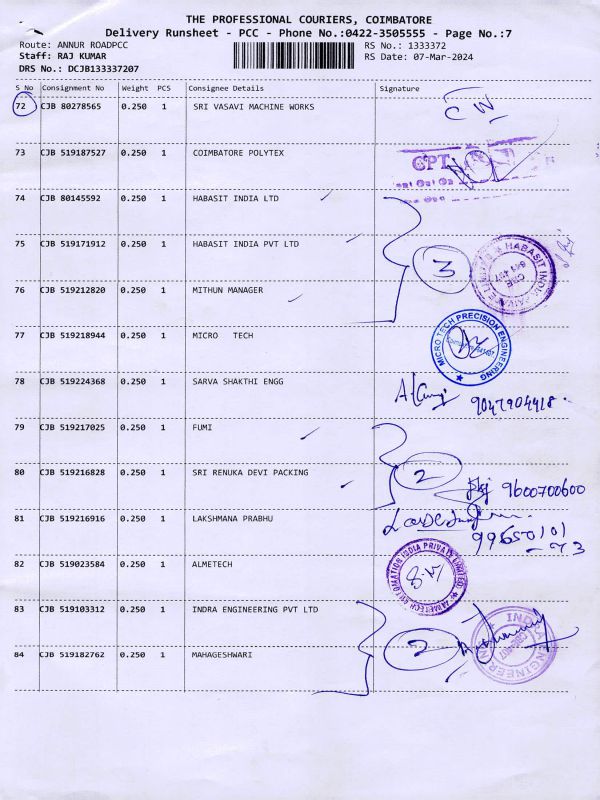 THE PROFESSIONAL COURIERS, COIMBATORE
Delivery Runsheet - PCC - Phone No.:0422-3505555 - Page No.:7
Route: ANNUR ROADPCC
RS No.: 1333372
Staff: RAJ KUMAR
RS Date: 07-Mar-2024
DRS No.: DCJB133337207
S No Consignment No Weight PCS Consignee Details Signature
72 CJB 80278565 0.250 1 SRI VASAVI MACHINE WORKS
CW
73 CJB 519187527 0.250 1 COIMBATORE POLYTEX
CPT
74 CJB 80145592 0.250 1 HABASIT INDIA LTD
75 CJB 519171912 0.250 1 HABASIT INDIA PVT LTD
3
76 CJB 519212820 0.250 1 MITHUN MANAGER
77 CJB 519218944 0.250 1 MICRO TECH
MICRO TECH PRECISION ENGINEERING
78 CJB 519224368 0.250 1 SARVA SHAKTHI ENGG
9047904418
79 CJB 519217025 0.250 1 FUMI
80 CJB 519216828 0.250 1 SRI RENUKA DEVI PACKING
2
9600700600
81 CJB 519216916 0.250 1 LAKSHMANA PRABHU
99650101
-73
82 CJB 519023584 0.250 1 ALMETECH
83 CJB 519103312 0.250 1 INDRA ENGINEERING PVT LTD
2
84 CJB 519182762 0.250 1 MAHAGESHWARI